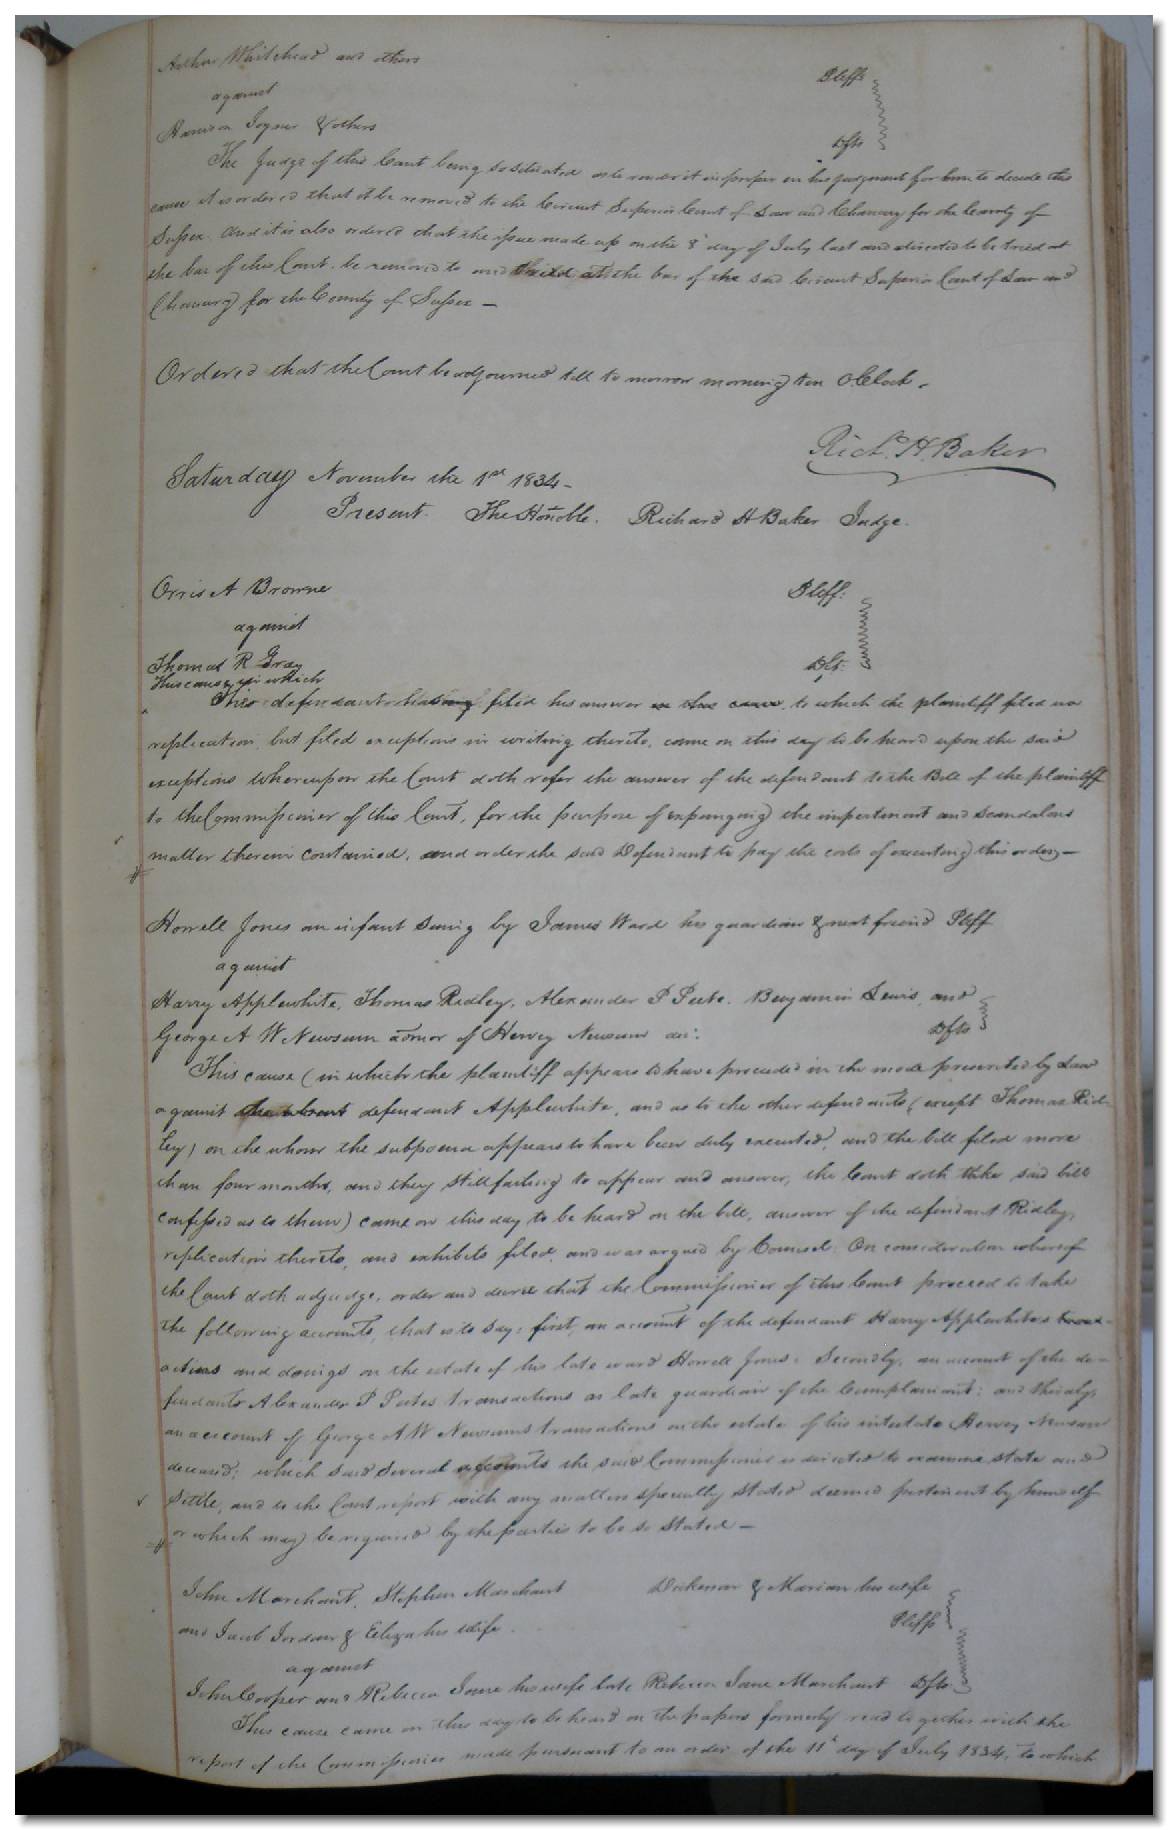 Arthur Whitehead and others
Pleffs
against
Harrison Joyner & others
Dfts
The Judge of this Court being so situated as to render it improper in his judgment for him to decide this
cause it is ordered that it be removed to the Circuit Superior Court of Law and Chancery for the County of
Sussex. And it is also ordered that the issue made up on the 8th day of July last and directed to be tried at
the bar of this Court, be removed to and tried at the bar of the said Circuit Superior Court of Law and
Chancery for the County of Sussex —
Ordered that the Court be adjourned till to morrow morning ten OClock.
Richd. H. Baker
Saturday November the 1st 1834—
Present. The Honoble. Richard H Baker Judge.
Orris A Browne Pleff:
against
Thomas R Gray Dft:
This cause in which
The defendant having filed his answer in this cause, to which the plaintiff filed no
replication, but filed exceptions in writing thereto, came on this day to be heard upon the said
exceptions whereupon the Court doth refer the answer of the defendant to the Bill of the plaintiff
to the Commissioner of this Court, for the purpose of expunging the impertinent and scandalous
matter therein contained, and order the said Defendant to pay the costs of executing this order—
Howell Jones an infant suing by James Ward his guardian & next friend Pleff
against
Harry Applewhite, Thomas Ridley, Alexander P Peete. Benjamin Lewis, and
George A W Newsum admor of Hervey Newsum dec: Dfts
This cause (in which the plaintiff appears to have proceeded in the mode prescribed by Law
against the absent defendant Applewhite, and as to the other defendants (except Thomas Rid-
ley) on the whom the subpoena appears to have been duly executed, and the bill filed more
than four months, and they still failing to appear and answer, the Court doth take said bill
confessed as to them) came on this day to be heard on the bill, answer of the defendant Ridley,
replication thereto, and exhibits filed, and was argued by Counsel: On consideration whereof
the Court doth adjudge, order and decree that the Commissioner of this Court proceed to take
the following accounts, that is to say: first, an account of the defendant Harry Applewhite's trans-
actions and doings on the estate of his late ward Howell Jones: Secondly, an account of the de-
fendants Alexander P Peetes transactions as late guardian of the Complainant: and thirdly,
an account of George A W Newsums transactions on the estate of his intestate Hervey Newsum
deceased; which said several accounts the said Commissioner is directed to examine state and
settle, and to the Court report with any matters specially stated deemed pertinent by himself
or which may be required by the parties to be so stated —
John Marchant, Stephen Marchant Dickenson & Marian his wife
and Jacob Jordan & Eliza his wife. Pleffs
against
John Cooper and Rebecca Jane his wife late Rebecca Jane Marchant Dfts.
This cause came on this day to be heard on the papers formerly read together with the
report of the Commissioner made pursuant to an order of the 11th day of July 1834, to which